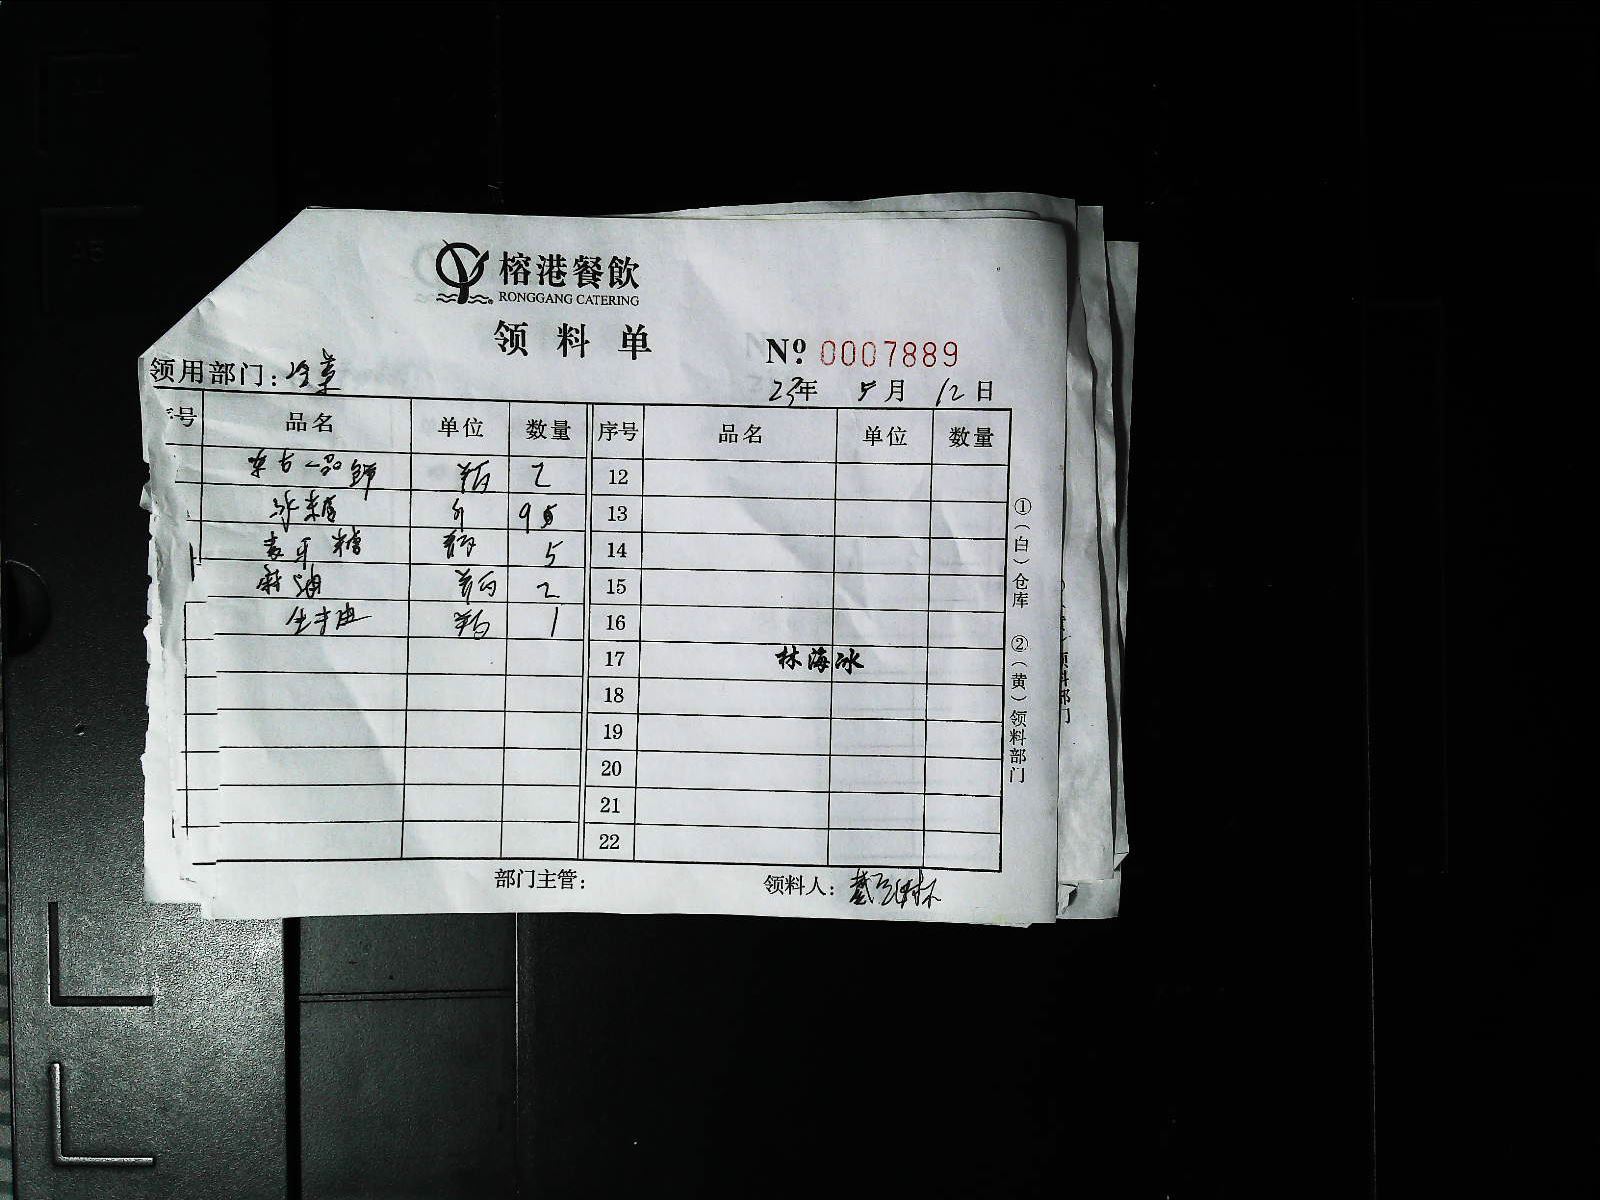 榕港餐飲
RONGGANG CATERING
领料单
Nº 0007889
领用部门：冷菜
23年 5月 12日
号 品名 单位 数量 序号 品名 单位 数量
东古一品鲜 2 12
冰糖 斤 95 13
麦芽糖 5 14
2 15
1 16
17 林海冰
18
19
20
21
22
部门主管： 领料人：
①（白）仓库 ②（黄）领料部门